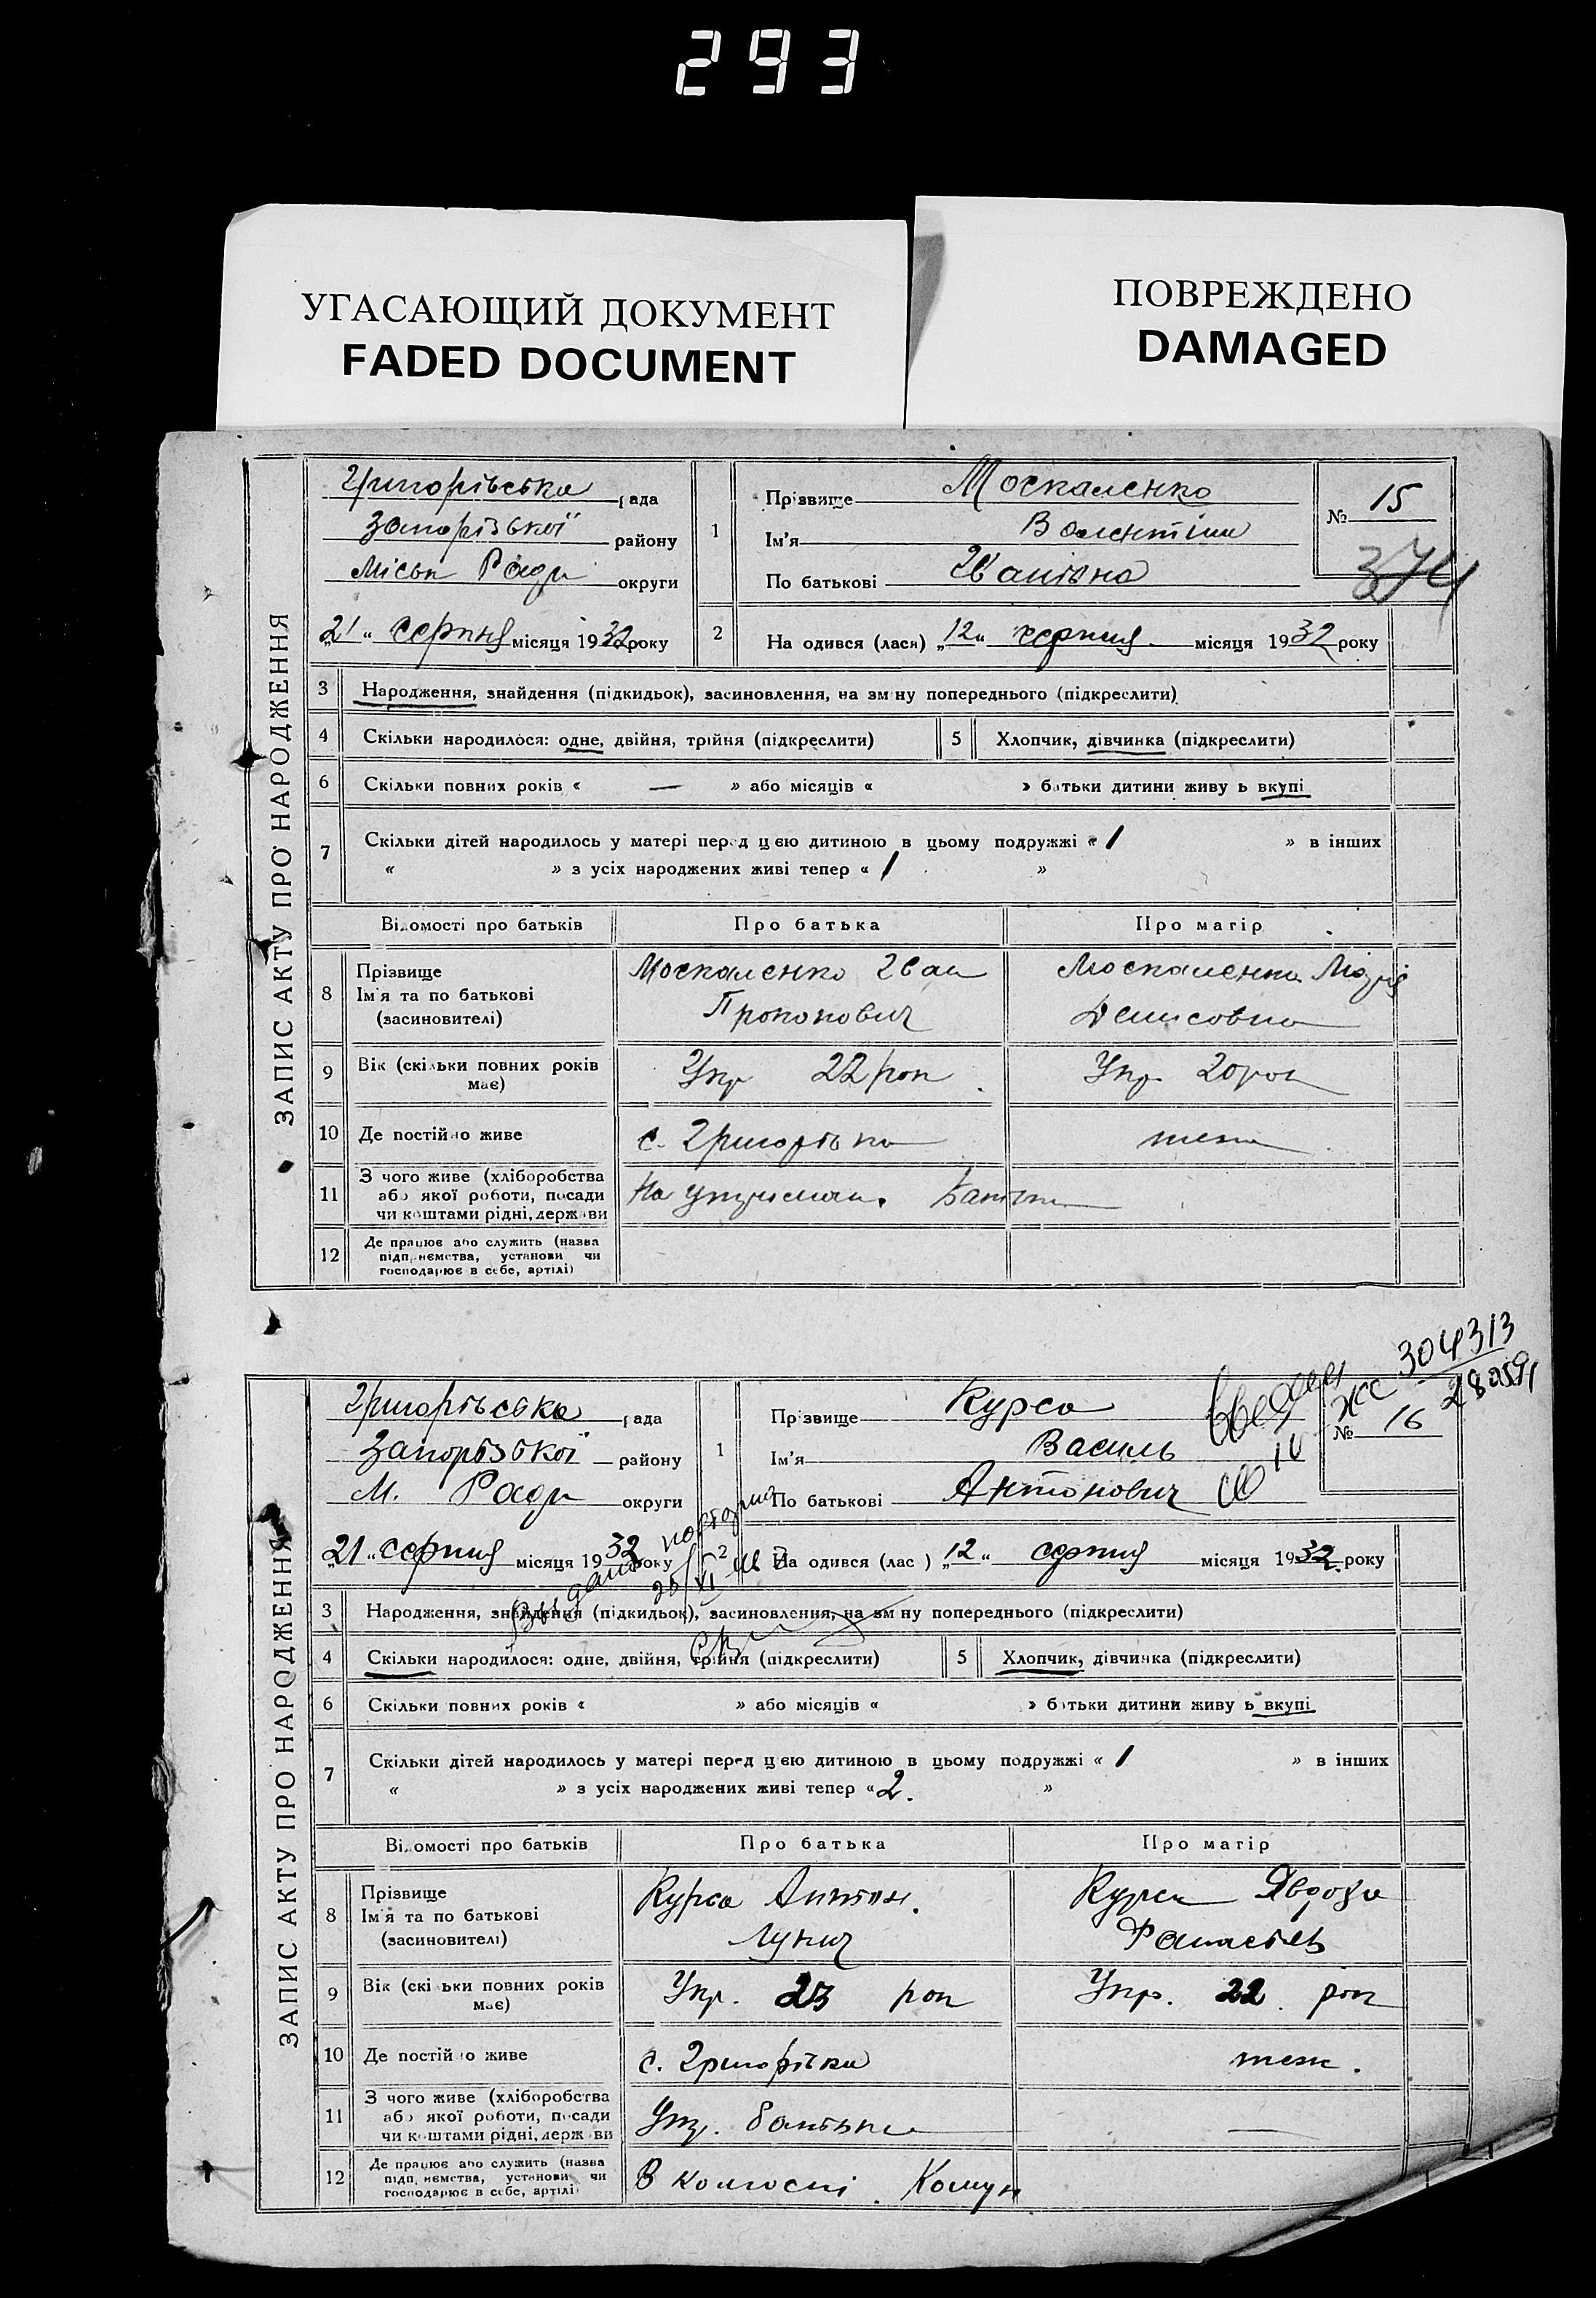 293
УГАСАЮЩИЙ ДОКУМЕНТ
FADED DOCUMENT
ПОВРЕЖДЕНО
DAMAGED
ЗАПИС АКТУ ПРО НАРОДЖЕННЯ
Григорівська рада
Запорізької району
Міськ Ради округи
„21“ серпня місяця 1932 року
1
Прізвище Москаленко
Ім'я Валентіна
По батькові Іванівна
№ 15
374
2 На одився (лася) „12“ серпня місяця 1932 року
3 Народження, знайдення (підкидьок), засиновлення, на зм ну попереднього (підкреслити)
4 Скільки народилося: одне, двійня, трійня (підкреслити) 5 Хлопчик, дівчинка (підкреслити)
6 Скільки повних років « — » або місяців « » батьки дитини живу ь вкупі
7 Скільки дітей народилось у матері перед цією дитиною в цьому подружжі « 1 » в інших
« » з усіх народжених живі тепер « 1 »
Відомості про батьків Про батька Про матір
8 Прізвище
Ім'я та по батькові
(засиновителі)
Москаленко Іван
Прокопович
Москаленко Марія
Денисовна
9 Вік (скільки повних років
має)
Укр 22 рок
Укр. 20 рок
10 Де постійно живе с. Григорівка теж
11 З чого живе (хліборобства
або якої роботи, посади
чи коштами рідні, держави
На утриман. Батьки
12 Де працює або служить (назва
підприємства, установи чи
господарює в себе, артілі)
ЖС 304313
280591
ЗАПИС АКТУ ПРО НАРОДЖЕННЯ
Григорівська рада
Запорізької району
М. Ради округи
„21“ серпня місяця 1932 року
1
Прізвище Курса
Ім'я Василь
По батькові Антонович
№ 16
2 На одився (лас ) „12“ серпня місяця 1932 року
3 Народження, знайдення (підкидьок), засиновлення, на зм ну попереднього (підкреслити)
4 Скільки народилося: одне, двійня, трійня (підкреслити) 5 Хлопчик, дівчинка (підкреслити)
6 Скільки повних років « » або місяців « » батьки дитини живу ь вкупі
7 Скільки дітей народилось у матері перед цією дитиною в цьому подружжі « 1 » в інших
« » з усіх народжених живі тепер « 2. »
Відомості про батьків Про батька Про матір
8 Прізвище
Ім'я та по батькові
(засиновителі)
Курса Антон
Лукич
Курса
9 Вік (скільки повних років
має)
Укр. 23 рок
Укр. 22 рок
10 Де постійно живе с. Григорівка теж.
11 З чого живе (хліборобства
або якої роботи, посади
чи коштами рідні, держави
Утр. батьки —
12 Де працює або служить (назва
підприємства, установи чи
господарює в себе, артілі)
В колгоспі Комун